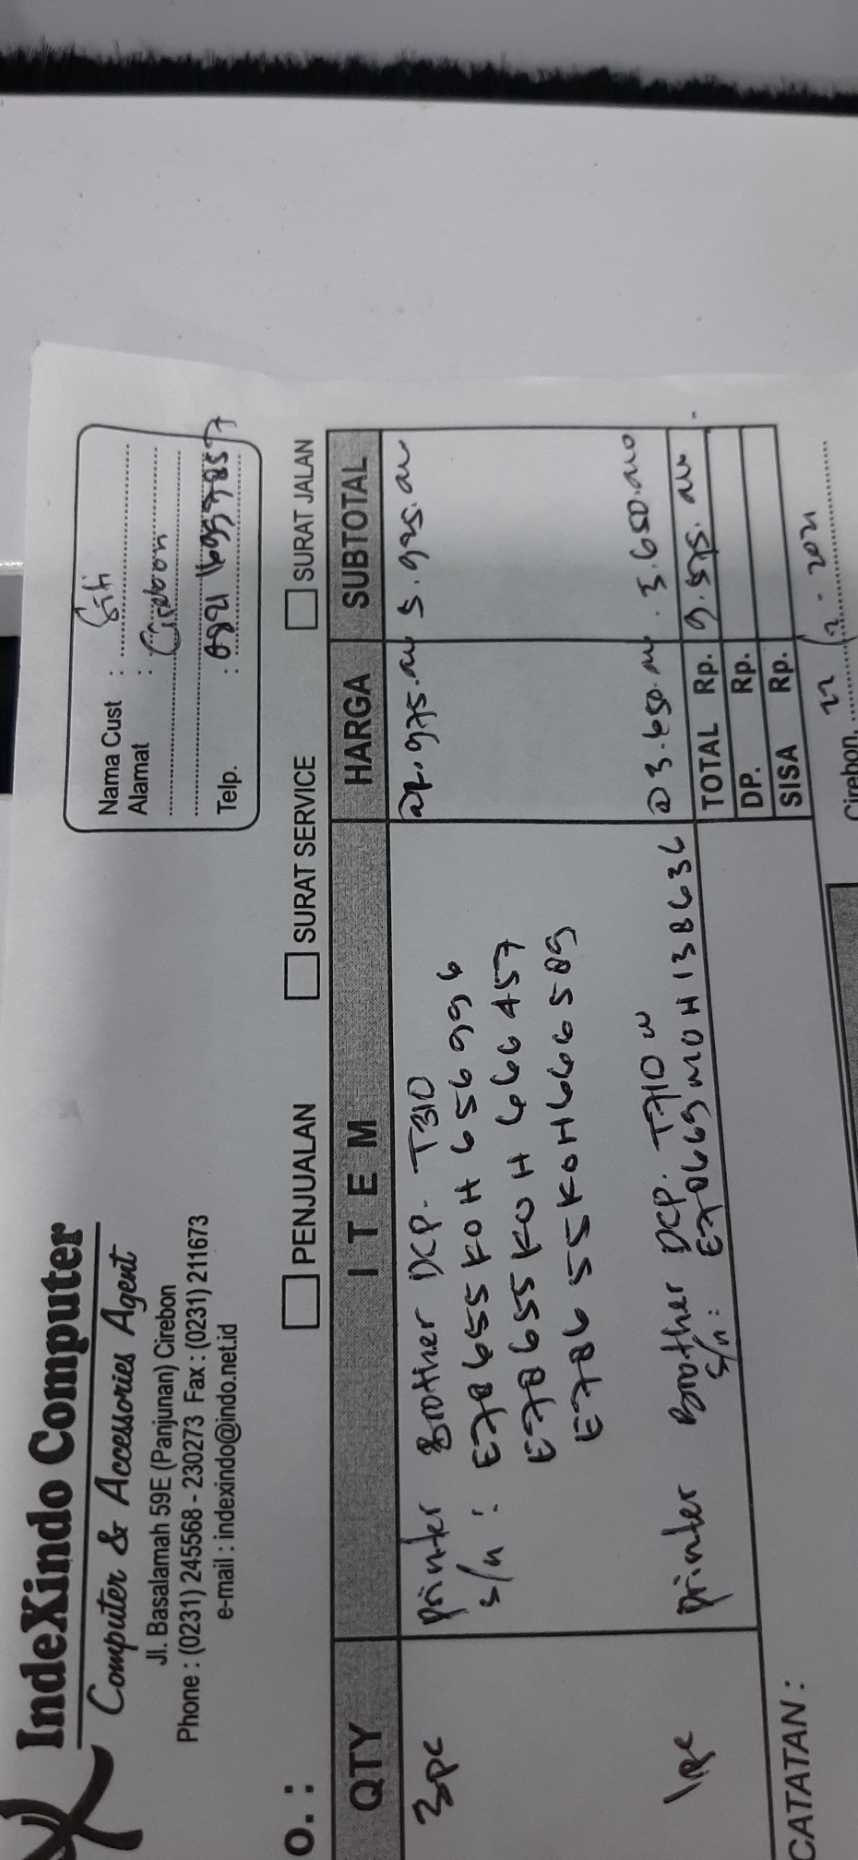 IndeXindo Computer
Computer & Accessories Agent
Jl. Basalamah 59E (Panjunan) Cirebon
Phone : (0231) 245568 - 230273 Fax : (0231) 211673
e-mail : indexindo@indo.net.id
Nama Cust : Siti
Alamat : Cirebon
Telp. :
O. :
PENJUALAN SURAT SERVICE SURAT JALAN
QTY ITEM HARGA SUBTOTAL
3pc Printer Brother DCP. T310
s/n : E78655K0H656996
E78655K0H666457
E78655K0H666589
1pc Printer Brother DCP. T710W @3.650. 3.650.
s/n : E78669M0H138636
TOTAL Rp. 9.575.
DP. Rp.
SISA Rp.
CATATAN :
Cirebon, 22 2021